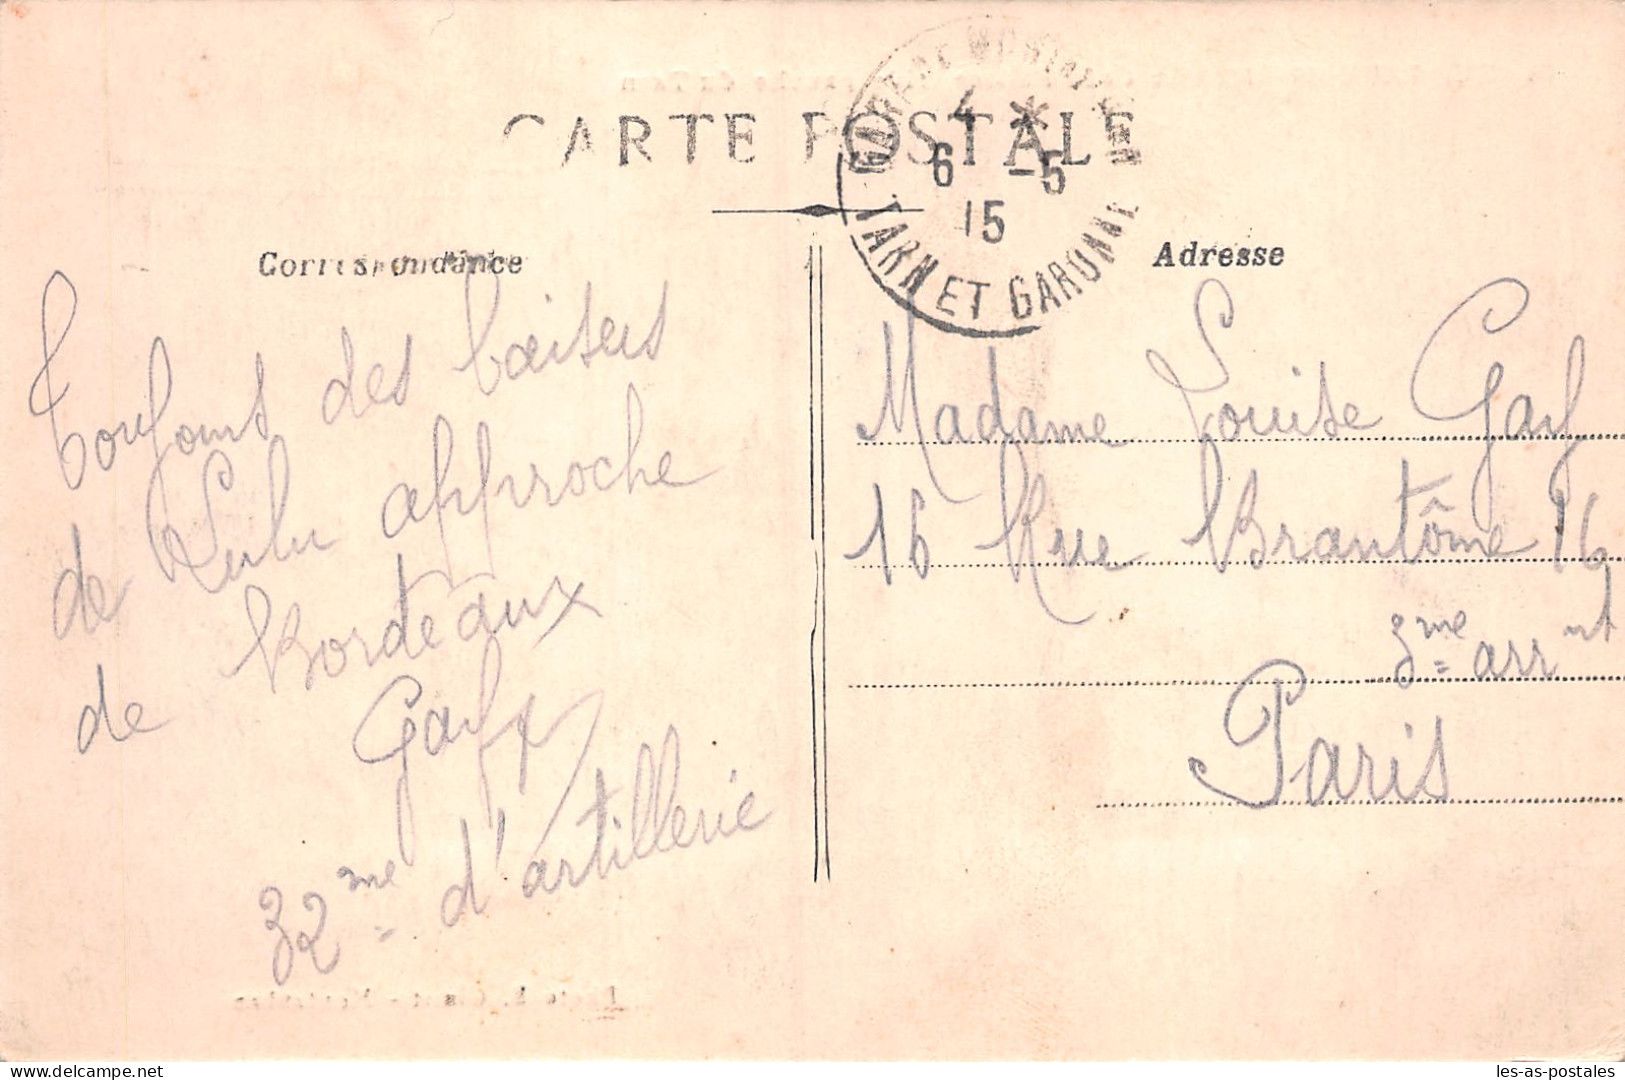 CARTE POSTALE
GARE DE MONTAUBAN
4 *
6 -5
15
TARN ET GARONNE
Correspondance
Adresse
Toujours des baisers
de Lulu approche
de Bordeaux
Galy
32me d'artillerie
Madame Louise Galy
16 Rue Brantôme 16
3me arrnt
Paris
delcampe.net
les-as-postales